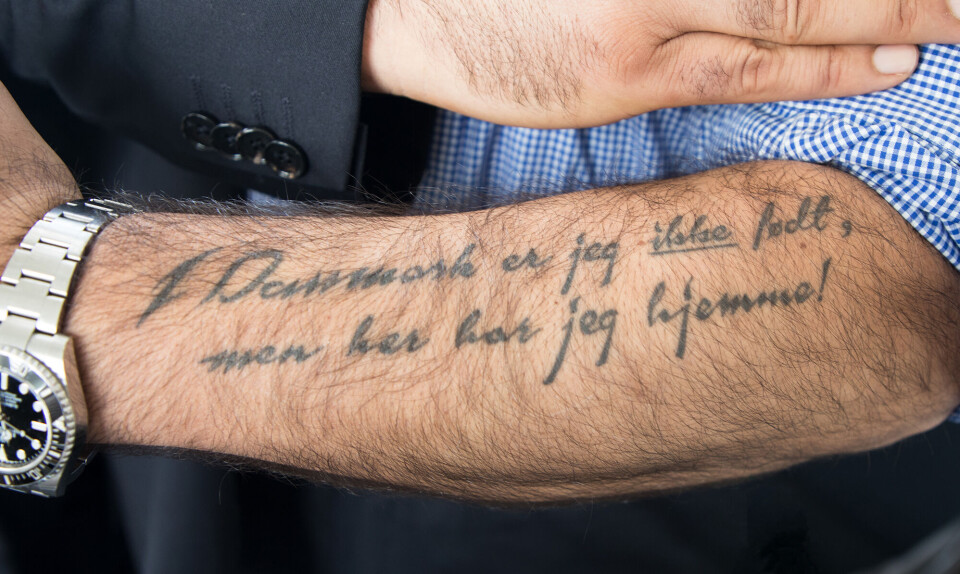 I Danmark er jeg ikke født,
men her har jeg hjemme!